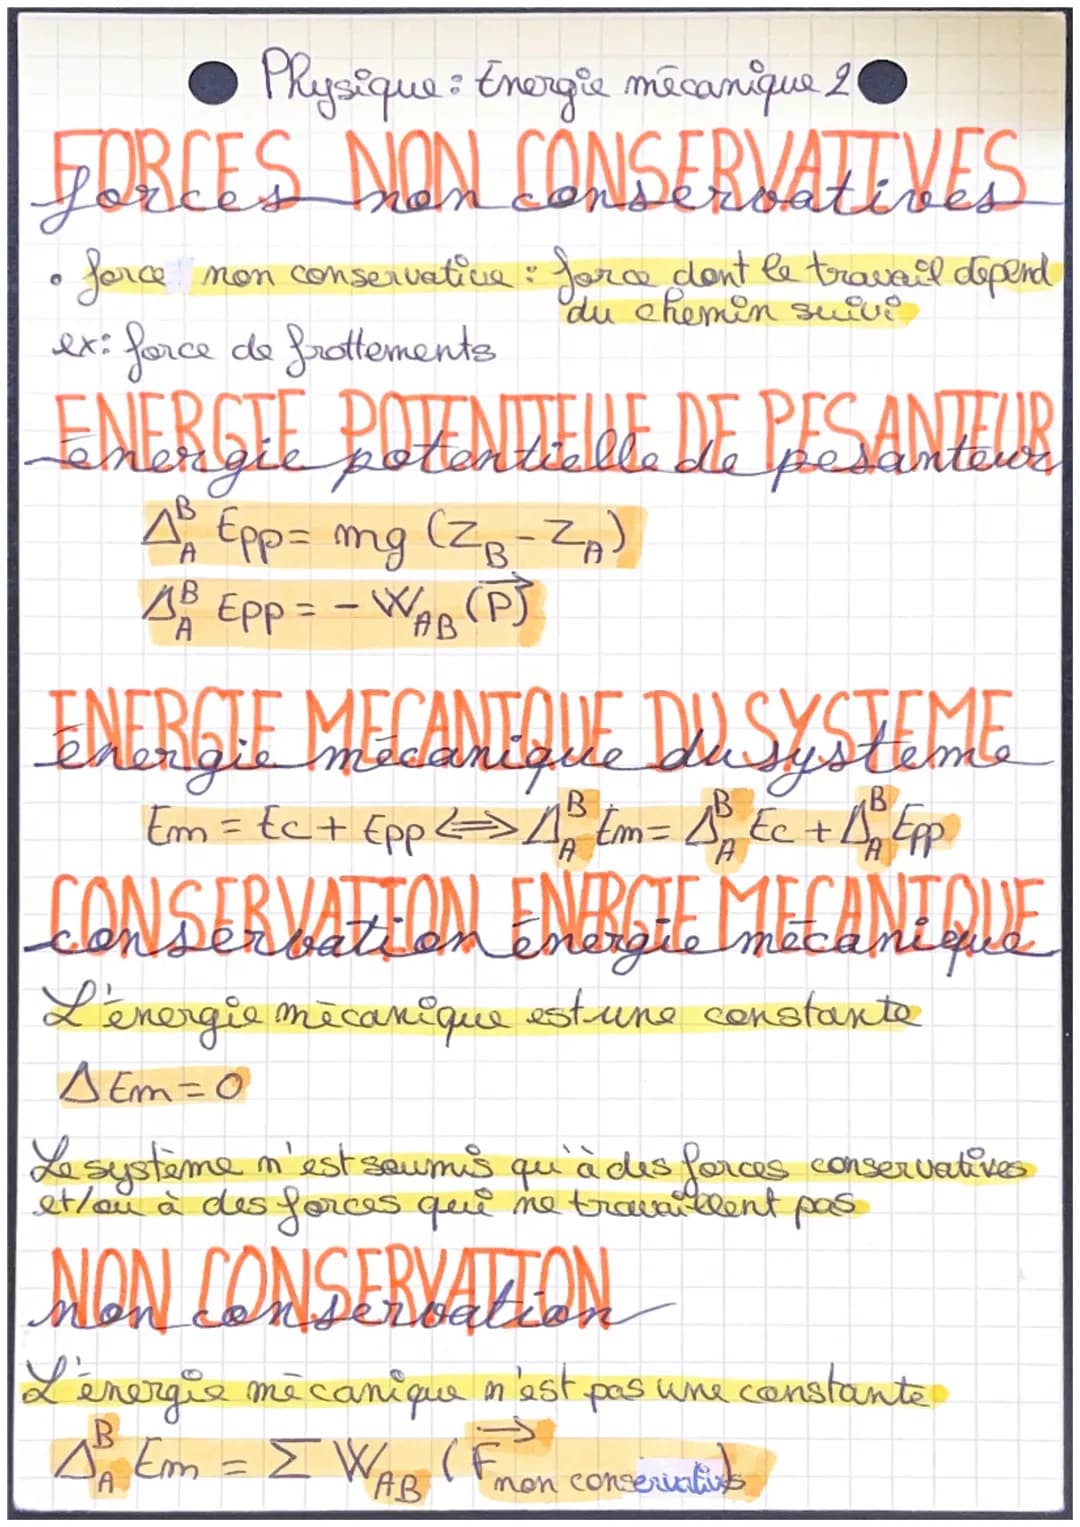 Physique : Énergie mécanique 2
FORCES NON CONSERVATIVES
forces non conservatives
• force non conservative : force dont le travail dépend
du chemin suivi
ex: force de frottements
ENERGIE POTENTIELLE DE PESANTEUR
énergie potentielle de pesanteur
Δ_A^B Epp = mg (Z_B - Z_A)
Δ_A^B Epp = - W_AB (P⃗)
ENERGIE MECANIQUE DU SYSTEME
énergie mécanique du systeme
Em = Ec + Epp ⟺ Δ_A^B Em = Δ_A^B Ec + Δ_A^B Epp
CONSERVATION ENERGIE MECANIQUE
conservation énergie mécanique
L'énergie mécanique est une constante
Δ Em = 0
Le système n'est soumis qu'à des forces conservatives
et/ou à des forces qui ne travaillent pas
NON CONSERVATION
non conservation
L'énergie mécanique n'est pas une constante
Δ_A^B Em = Σ W_AB (F⃗ non conservatives)